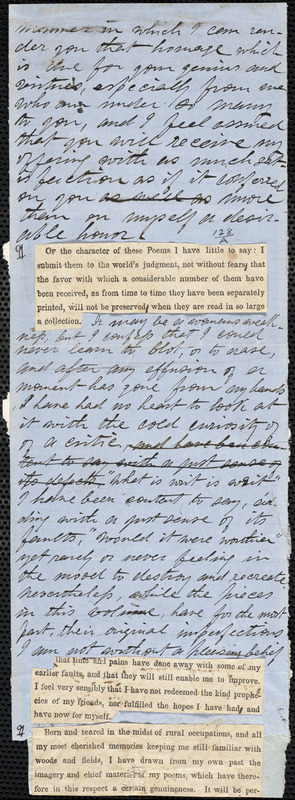 manner in which I can ren-
der you that homage which
is due for your genius and
virtues, especially from me
who am under so many
to you, and I feel assured
that you will receive my
offering with as much sat-
isfaction as if it conferred
on you as well as more
than on myself a desir-
able honor.
128
¶ OF the character of these Poems I have little to say: I
submit them to the world's judgment, not without fear, that
the favor with which a considerable number of them have
been received, as from time to time they have been separately
printed, will not be preserved when they are read in so large
a collection. It may be a womans weak-
ness, but I confess that I could
never learn to blot, or to erase,
and after any effusion of a
moment has gone from my hands
I have had no heart to look at
it with the cold curiosity of
of a critic, and have been con
tent to say with a just sense of
its defects "what is writ is writ"
I have been content to say, ad-
ding with a just sense of its
faults, "Would it were worthier"
yet rarely or never feeling in
the mood to destroy and recreate
Nevertheless, while the pieces
in this volume have for the most
part, their original imperfections
I am not without a pleasing belief
that time and pains have done away with some of my
earlier faults, and that they will still enable me to improve.
I feel very sensibly that I have not redeemed the kind prophe-
cies of my friends, nor fulfilled the hopes I have had, and
have now for myself.
¶ Born and reared in the midst of rural occupations, and all
my most cherished memories keeping me still familiar with
woods and fields, I have drawn from my own past the
imagery and chief materiel of my poems, which have there-
fore in this respect a certain genuineness. It will be per-